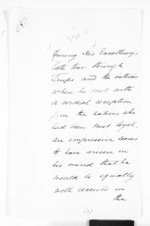 During Mr Carruthers'
late tour through
Taupo and the interior
where he met with
a cordial reception
from the natives who
had been most loyal,
an impression seems
to have arisen in
his mind that he
would be equally
well received in
the